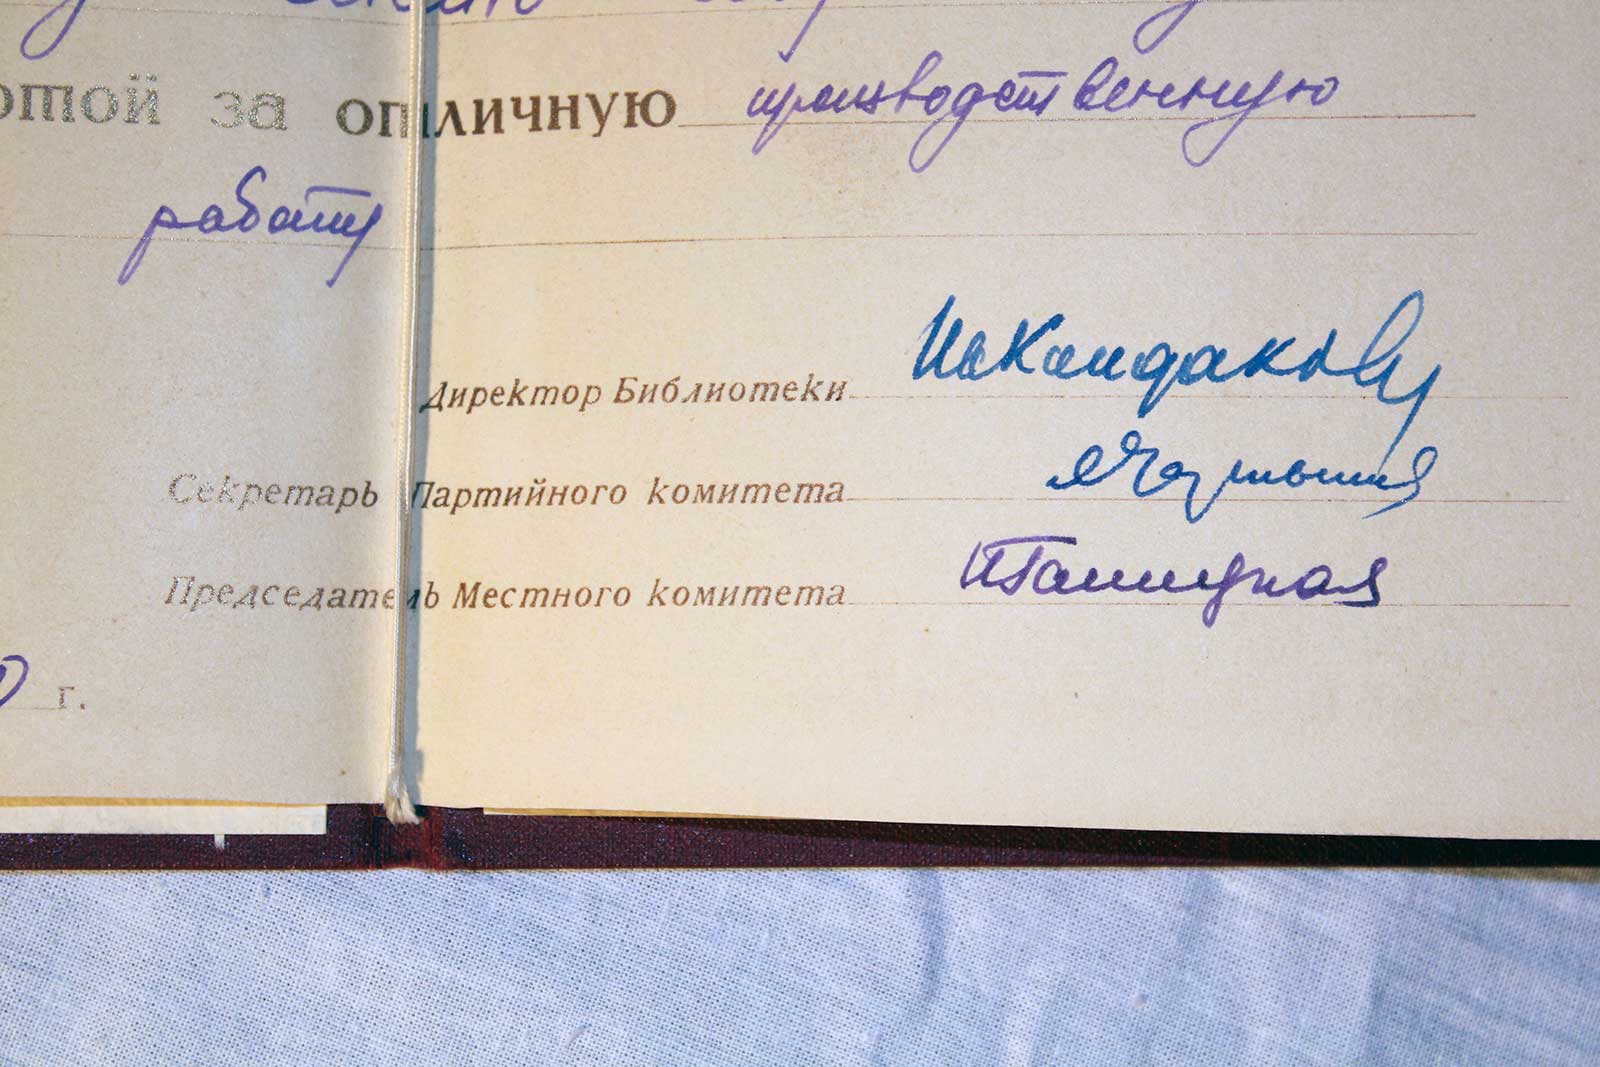 отой за отличную производственную
работу
Директор Библиотеки ИККондаков
Секретарь Партийного комитета
Председатель Местного комитета
г.